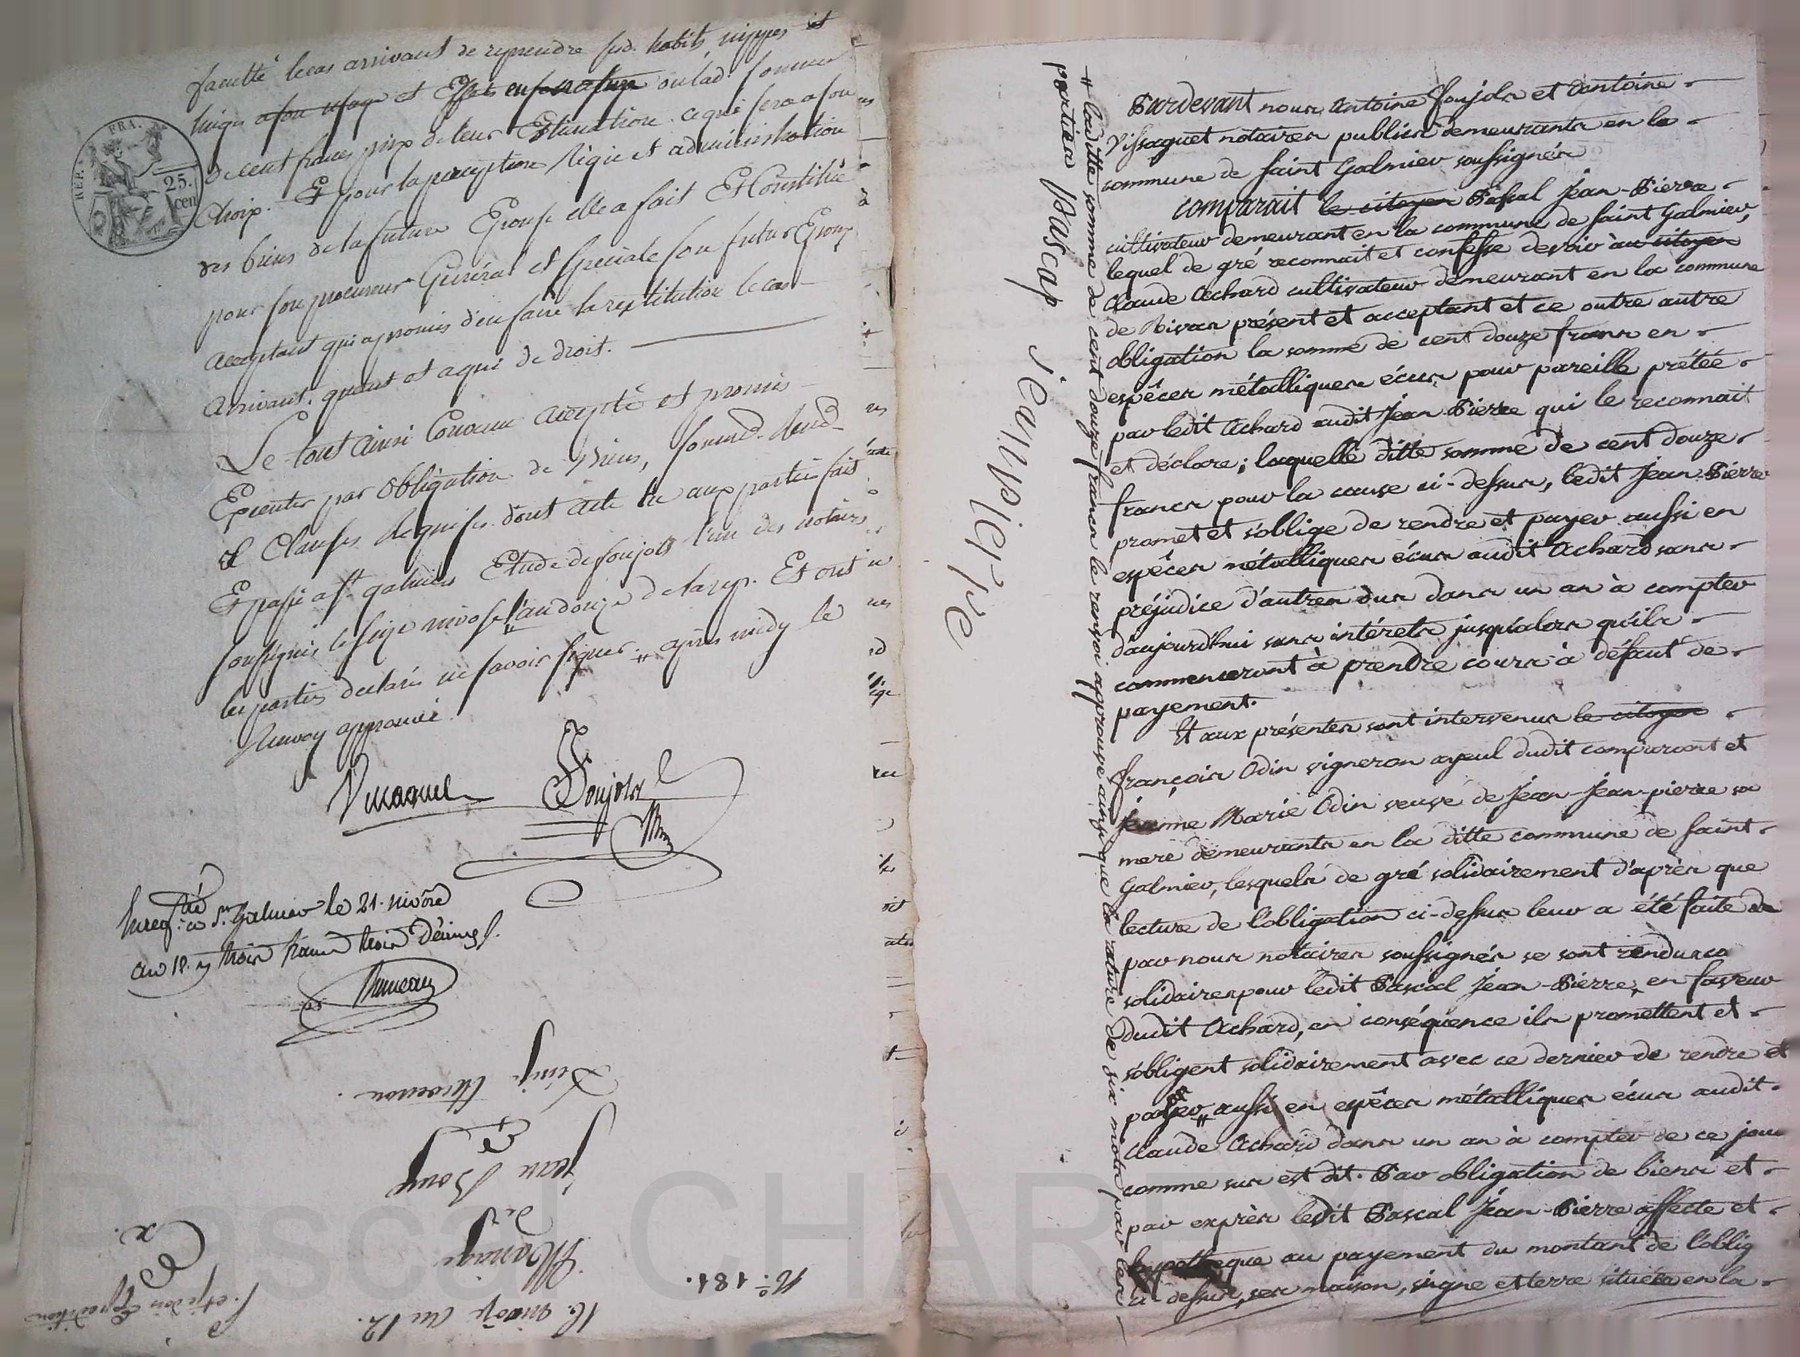 faculté le cas arrivant de reprendre sesd. habits nippes et
linges a son usage et Effets en son nature ou lad. somme
de cent francs prix de leur Estimation a qui sera a son
Choix. Et pour la perception Régie et administration
des biens de la future Epouse elle a fait Et Constitué
pour son procureur Général et Spéciale son futur Epoux
acceptant qui a promis d'en faire la restitution le cas
arrivant, quand et a qui de droit.
Le tout ainsi Convenu accepté et promis
Executer par obligation de Biens, soumd. Rend.
& Clauses Requises. dont acte lu aux parties fait
Et passé a St. galmier Etude de foujols l'un des notaires
soussignés le seize nivose l'an douze de la rep. Et ont
les parties declaré ne savoir signer. " après midy le
Renvoy approuvé.
Vissaguet Foujols
REP. FRA.
25.
cen
Enregtré à St. Galmier le 21. nivôse
an 12. R/ trois francs trois Décimes
Nº. 181.
16. nivose an 12.
Mariage
de
Jean
&
Expedition
" laditte somme de cent douze francs le renvoi approuvé ainsi que la rature de six mots par les
parties Pascap
jeanpierre
Pardevant nous Antoine Foujols et Antoine
Vissaguet notaires publics demeurants en la
commune de Saint Galmier soussignés
Comparait le citoyen Pascal Jean-Pierre
cultivateur demeurant en la commune de Saint Galmier,
lequel de gré reconnait et confesse devoir au citoyen
Claude Achard cultivateur demeurant en la commune
de Rivas présent et acceptant et ce outre autre
obligation la somme de cent douze francs en
espêces métalliques écus pour pareille prétée
par ledit Achard audit Jean-Pierre qui le reconnait
et déclare; laquelle ditte somme de cent douze
francs pour la cause ci-dessus, ledit Jean-Pierre
promet et s'oblige de rendre et payer aussi en
espêces métalliques écus audit Achard sans
préjudice d'autres dus dans un an à compter
d'aujourdhui sans intérets jusqu'alors qu'ils
commenceront à prendre cours à défaut de
payement.
Et aux présentes sont intervenus le citoyen
François Odin vigneron ayeul dudit comparant et
Jeanne Marie Odin veuve de Jean Jean-pierre sa
mere demeurants en la ditte commune de Saint
Galmier, lesquels de gré solidairement d'après que
lecture de l'obligation ci-dessus leur a été faite
par nous notaires soussignés se sont rendus
solidaires pour ledit Pascal Jean-Pierre, en faveur
dudit Achard, en conséquence ils promettent et
s'obligent solidairement avec ce dernier de rendre et
payer " aussi en espêces métalliques écus audit
Claude Achard dans un an à compter de ce jour
comme sus est dit. Par obligation de biens et
par exprès ledit Pascal Jean-Pierre affecte et
hypotheque au payement du montant de l'oblig
ci-dessus, ses maison, vigne et terre situées en la